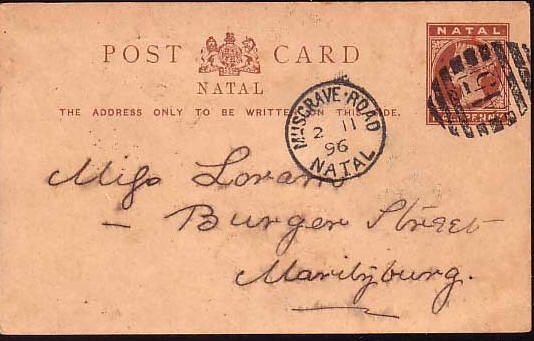 NATAL
POST CARD
NATAL
THE ADDRESS ONLY TO BE WRITTEN ON THIS SIDE.
MUSGRAVE·ROAD
2 11
96
NATAL
Miss
Burger Street
Maritzburg.